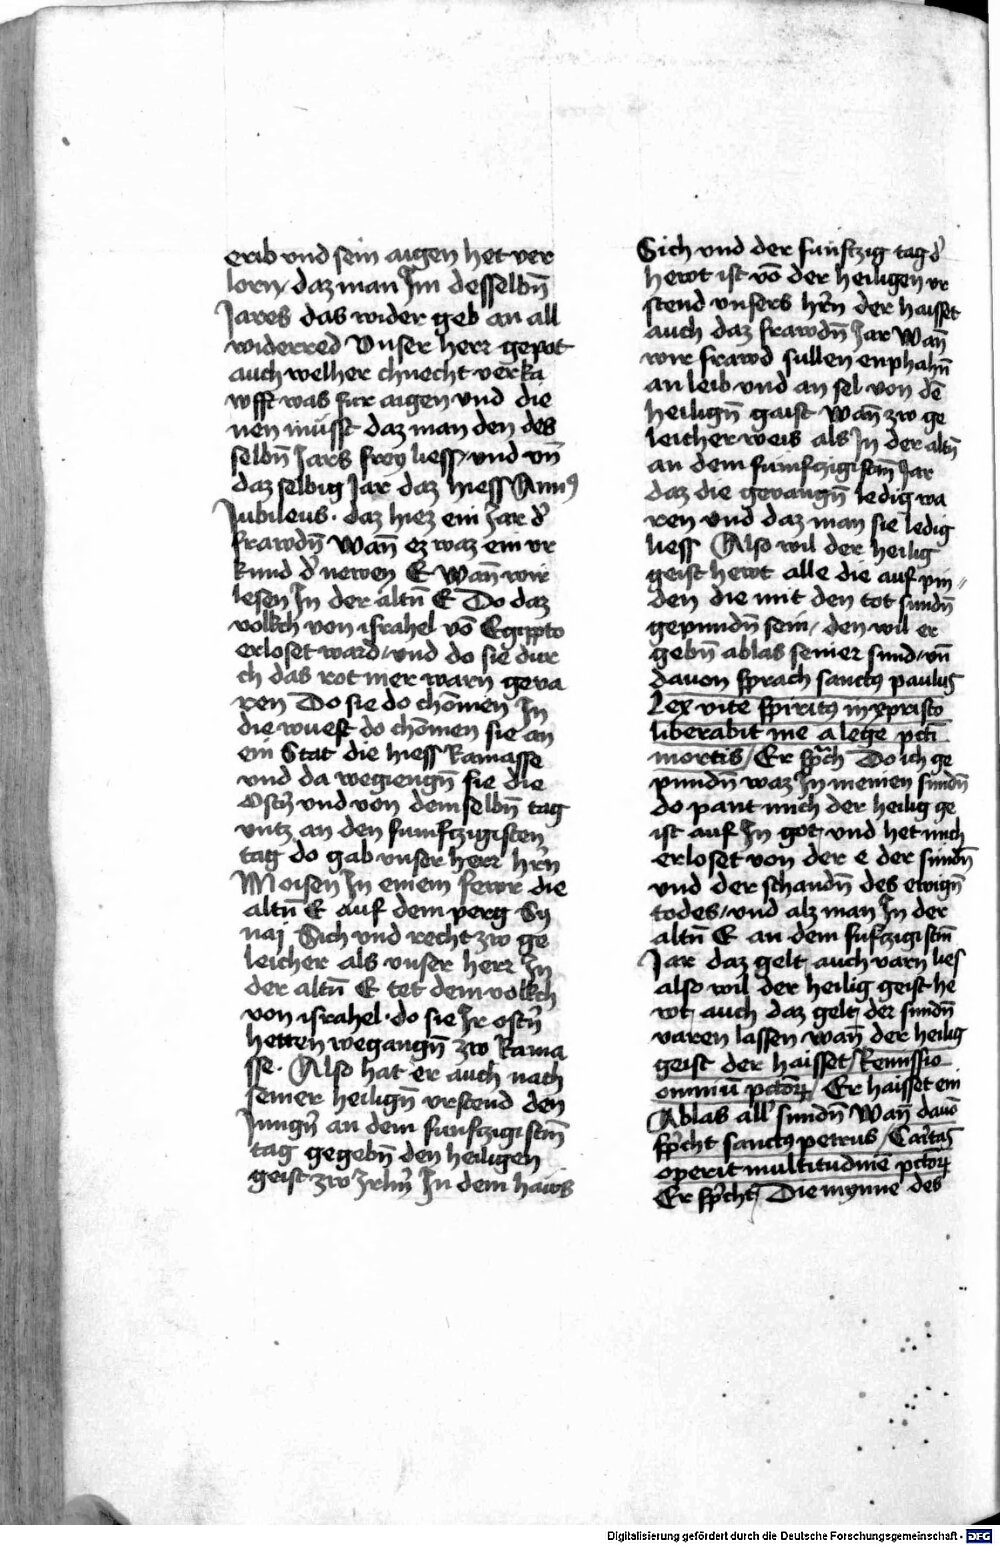 erib vnd sein aigen het ver
lorn/ daz man Jm desselbn̄
Jares das wider geb an all
widerred Vnser herr gepot
auch welher chnecht verka
wfft was fur aigen vnd die
nen müsst daz man den des
selbn̄ Jars frey liess/ vnd vn̄
daz selbig Jar daz hiess Annꝰ
Jubileus · daz hiez ein Jar d̕
frawdn̄ Wan̄ ez waz ein vr
kund d̕ newen E Wan̄ wir
lesen Jn der altn̄ E Do daz
volkch von israhel vō Egippto
erloset ward/ vnd do sie dur
ch das rot mer warn geua
ren Do sie do chōmen Jn
die wuest do chōmen sie an
ein Stat die hiess Ramasse
vnd da wegiengn̄ sie die
Ostn̕ vnd von dem selbn̄ tag
vntz an den fumftzigisten
tag do gab vnser herr hr̄n
Moisen Jn einem fewr die
altn̄ E auf dem perg Sy
naj Sich vnd recht zw ge
leicher als vnser herr Jn
der altn̄ E tet dem volkch
von israhel · do sie Jr ostn̕
hetten wegangn̄ zw Rama
sse · Also hat er auch nach
seiner heilign̄ vrstend den
Jungn̕ an dem funftzigistn̄
tag gegebn̄ den heiligen
geist zw Jrlm̕ Jn dem haws
Sich vnd der funftzig tag d̕
hewt ist vō der heiligen vr
stend vnsers hr̄n der haisset
auch daz frawdn̄ Jar Wan̄
wir frawd sullen enphahn̄
an leib vnd an sel von dē
heilign̄ gaist Wan̄ zw ge
leicher weis als Jn der altn̄
an dem fumftzigistm̄ Jar
daz die geuangn̄ ledig wa
ren vnd daz man sie ledig
liess Also wil der heilig
geist hewt alle die auf pin
den die mit den tot sundn̄
gepundn̄ sein/ den wil er
gebn̄ ablas seiner sund/ vn̄
dauon sprach sanctꝰ paulus
Lex vite spiritꝰ in xpristo
liberabit me a lege pcti
mortis/ Er sprach Do ich ge
pundn̄ waz Jn meinen sundn̄
do pant mich der heilig ge
ist auf Jn got/ vnd het mich
erloset von der e der sundn̄
vnd der schandn̄ des ewign̄
todes/ vnd alz man Jn der
altn̄ E an dem fufczigistn̄
Jar daz gelt auch varn lies
also wil der heilig geist he
wt auch daz gelt der sundn̄
varen lassen wan̄ der heilig
geist der haisset/ Remissio
omniū pctorꝝ/ Er haisset ein
Ablas all̕ sundn̄ Wan̄ dauō
sp̄cht sanctꝰ petrus/ Caritas
operit multitudinē pctorꝝ
Er sp̄cht/ Die mynne des
Digitalisierung gefördert durch die Deutsche Forschungsgemeinschaft - DFG